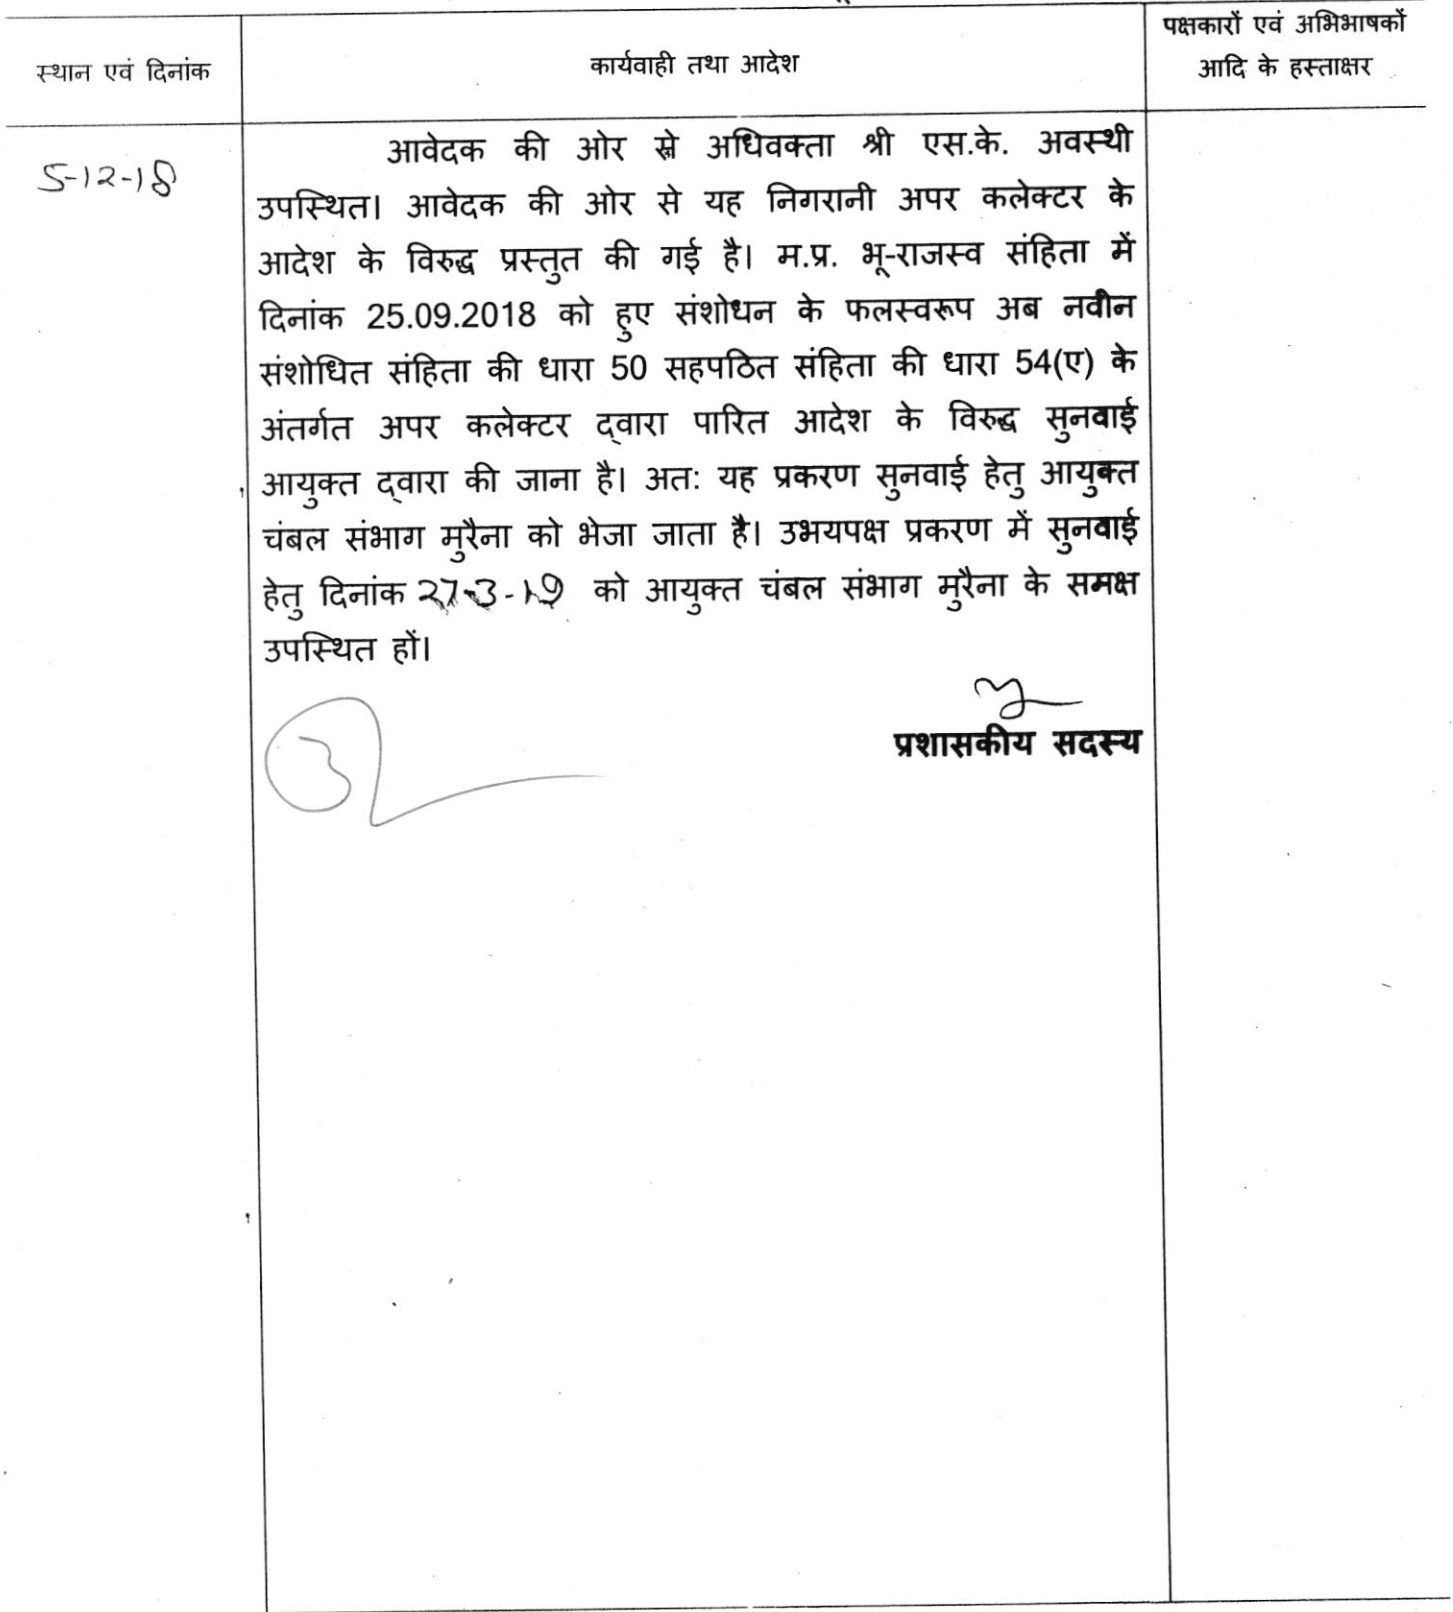 स्थान एवं दिनांक
कार्यवाही तथा आदेश
पक्षकारों एवं अभिभाषकों
आदि के हस्ताक्षर
5-12-18
आवेदक की ओर से अधिवक्ता श्री एस.के. अवस्थी
उपस्थित। आवेदक की ओर से यह निगरानी अपर कलेक्टर के
आदेश के विरुद्ध प्रस्तुत की गई है। म.प्र. भू-राजस्व संहिता में
दिनांक 25.09.2018 को हुए संशोधन के फलस्वरूप अब नवीन
संशोधित संहिता की धारा 50 सहपठित संहिता की धारा 54(ए) के
अंतर्गत अपर कलेक्टर द्वारा पारित आदेश के विरुद्ध सुनवाई
आयुक्त द्वारा की जाना है। अतः यह प्रकरण सुनवाई हेतु आयुक्त
चंबल संभाग मुरैना को भेजा जाता है। उभयपक्ष प्रकरण में सुनवाई
हेतु दिनांक 27-3-19 को आयुक्त चंबल संभाग मुरैना के समक्ष
उपस्थित हों।
प्रशासकीय सदस्य